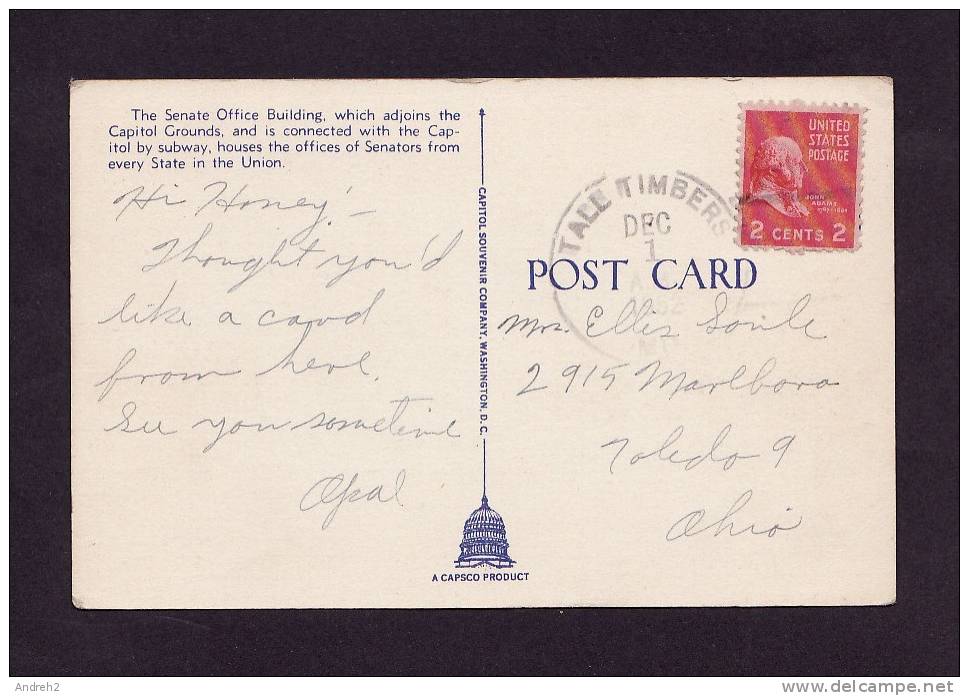 The Senate Office Building, which adjoins the
Capitol Grounds, and is connected with the Cap-
itol by subway, houses the offices of Senators from
every State in the Union.
Hi Honey! –
Thought you'd
like a card
from here.
See you sometime
Opal
CAPITOL SOUVENIR COMPANY, WASHINGTON, D. C.
A CAPSCO PRODUCT
TALL TIMBERS
DEC
1
UNITED
STATES
POSTAGE
JOHN
ADAMS
2 CENTS 2
POST CARD
Mrs. Ellis Soule
2915 Marlboro
Toledo 9
Ohio
Andreh2
www.delcampe.net